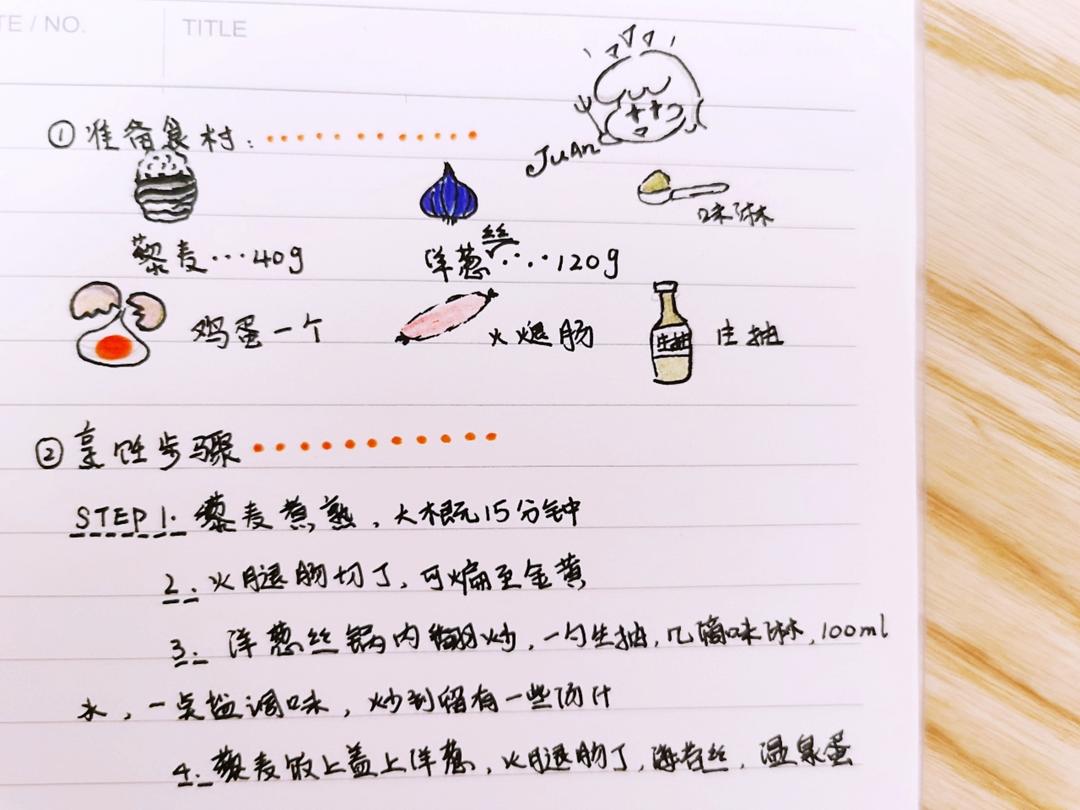 TE / NO.
TITLE
JUAn
①准备食材：
味淋
藜麦···40g
洋葱丝····120g
鸡蛋一个
火腿肠
生抽
生抽
②烹饪步骤
STEP 1. 藜麦煮熟，大概元15分钟
2. 火腿肠切丁，可煸至金黄
3. 洋葱丝锅内翻炒，一勺生抽，几滴味淋，100ml
水，一点盐调味，炒到留有一些汤汁
4. 藜麦饭上盖上洋葱，火腿肠丁，海苔丝，温泉蛋